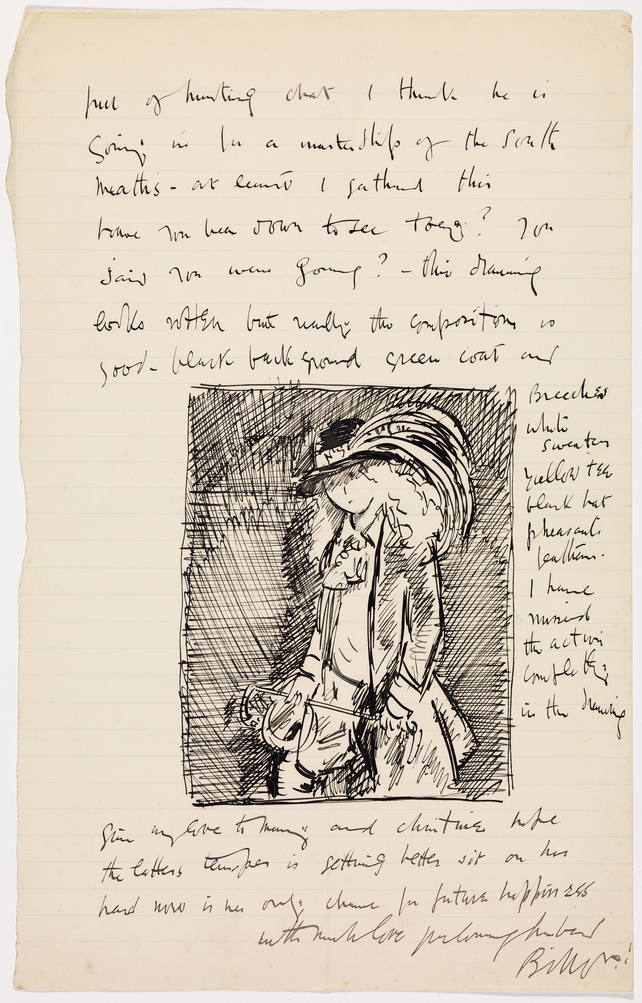 full of hunting chat I think he is
going in for a mastership of the South
Meaths - at least I gathered this
have you been down to see Tony? You
said you were going? - this drawing
looks rotten but really the composition is
good - black background green coat and
Breeches
white
sweater
yellow tie
black hat
pheasants
feathers.
I have
missed
the action
completely
in the drawing
give my love to Mary and Christine hope
the latters temper is getting better sit on her
hard now is her only chance for future happiness
with much love yr loving husband